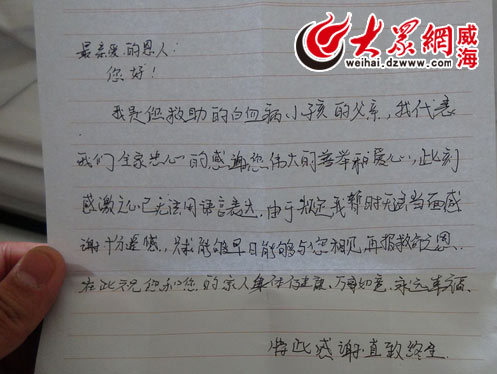 大众網 威海
weihai.dzwww.com
最亲爱的恩人：
您好！
我是您救助的白血病小孩的父亲，我代表
我们全家忠心的感谢您伟大的善举和爱心，此刻
感激之心已无法用语言表达。由于规定我暂时无法当面感
谢十分遗憾。只求能够早日能够与您相见再报救命之恩。
在此祝您和您的家人身体健康、万事如意、永远幸福。
特此感谢直致终生